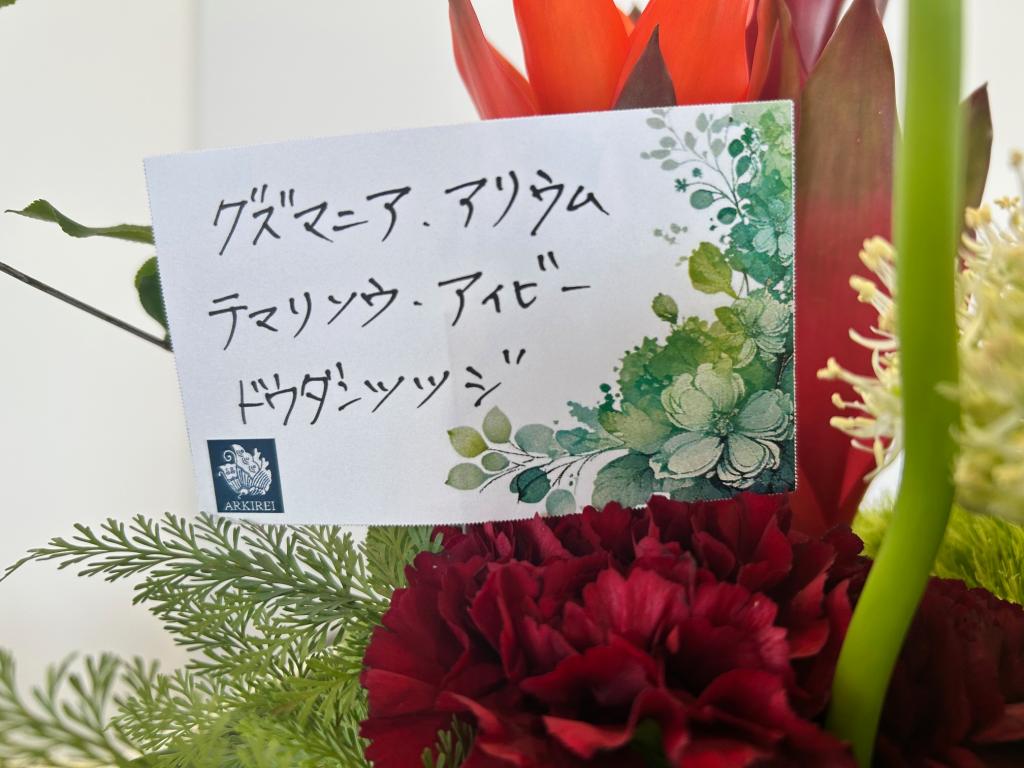 グズマニア．アリウム
テマリソウ．アイビー
ドウダンツツジ
ARKIREI